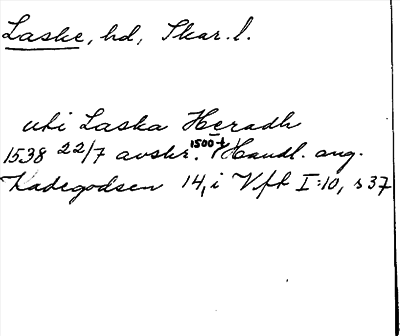 Laske, hd, Skar. l.
uti Laska Heradh
1538 22/7 avskr. 1500-t. Handl. ang.
Ladegodsen 14, i Vfh I:10, s 37